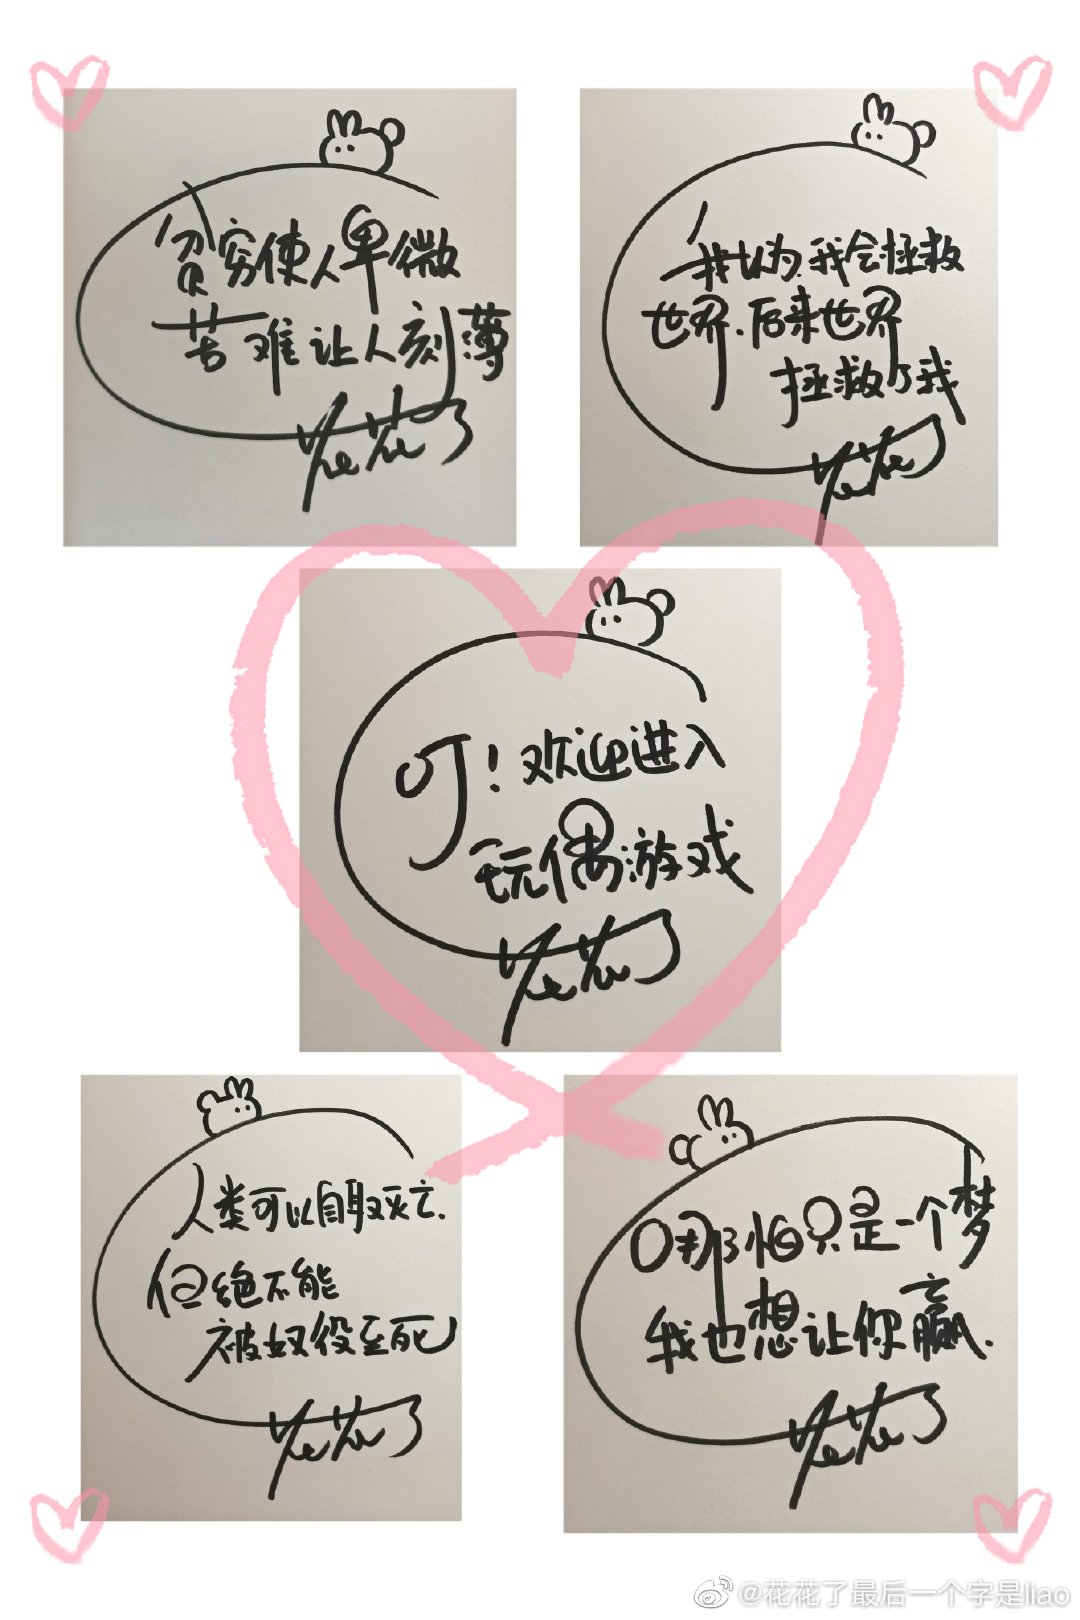 贫穷使人卑微
苦难让人刻薄
花花了
我以为.我会拯救
世界.后来世界
拯救了我
花花了
叮!欢迎进入
玩偶游戏
花花了
人类可以自取灭亡.
但绝不能
被奴役至死
花花了
哪怕只是一个梦
我也想让你赢.
花花了
@花花了最后一个字是liao